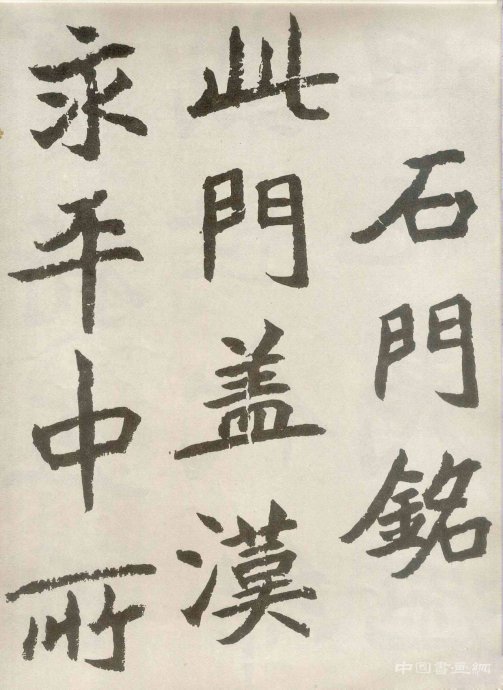 石門銘
此門盖漢
永平中所
中国书画网